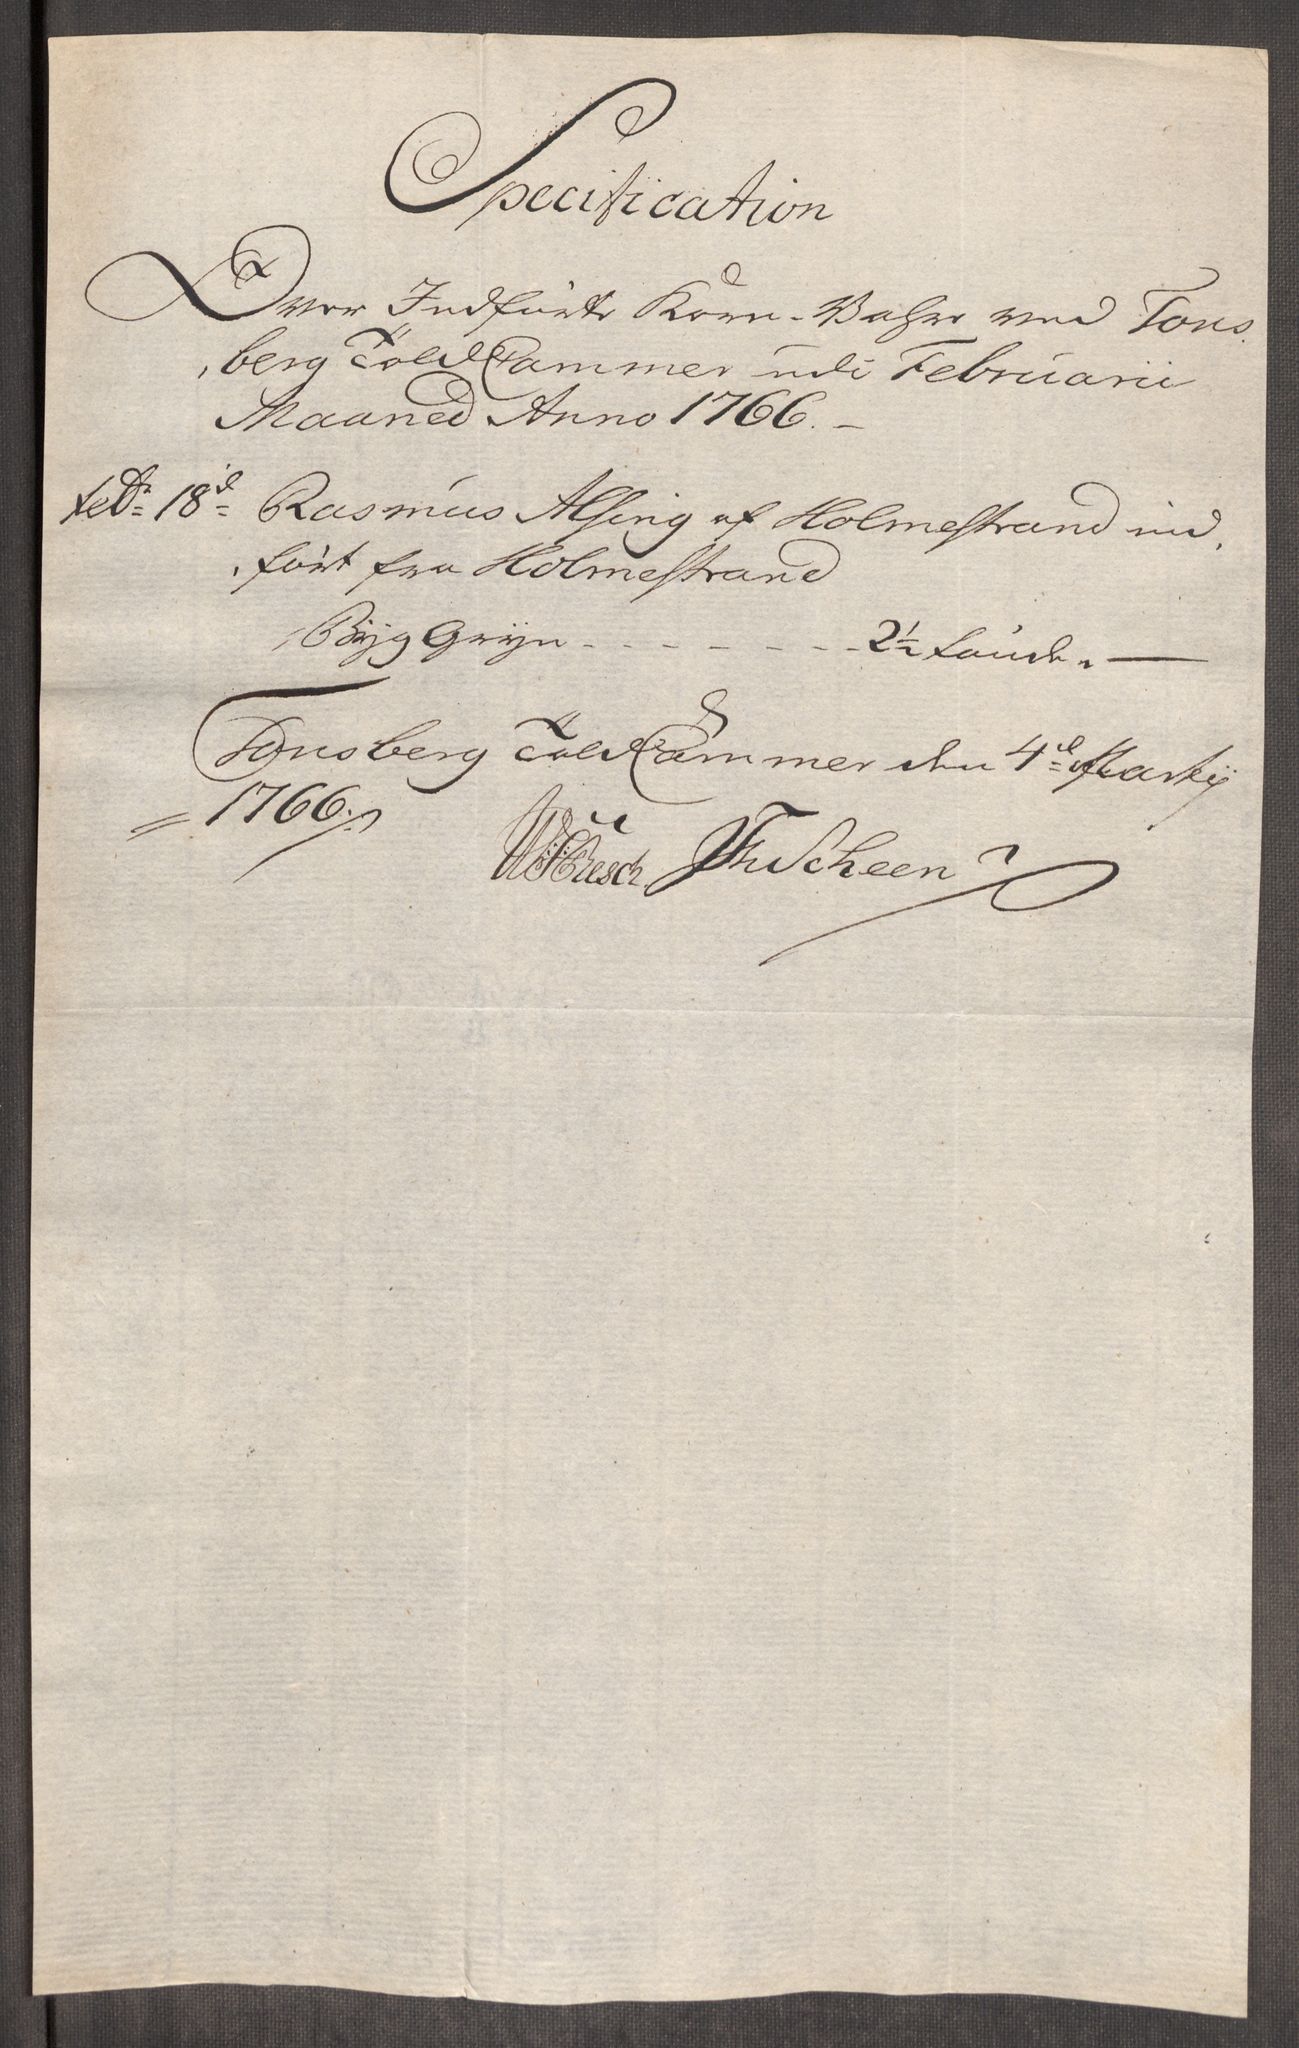 Specification
Over Indførte Korn-Vahre ved Tons-
berg Told Cammer udi Februarii
Maaned Anno 1766.
febr: 18d Rasmus Alsing af Holmestrand ind-
ført fra Holmestrand
Byg Gryn - - - - - - - - 2½ tønde.
Tonsberg Told Cammer den 4d Martij
1766.
Resch. Scheen